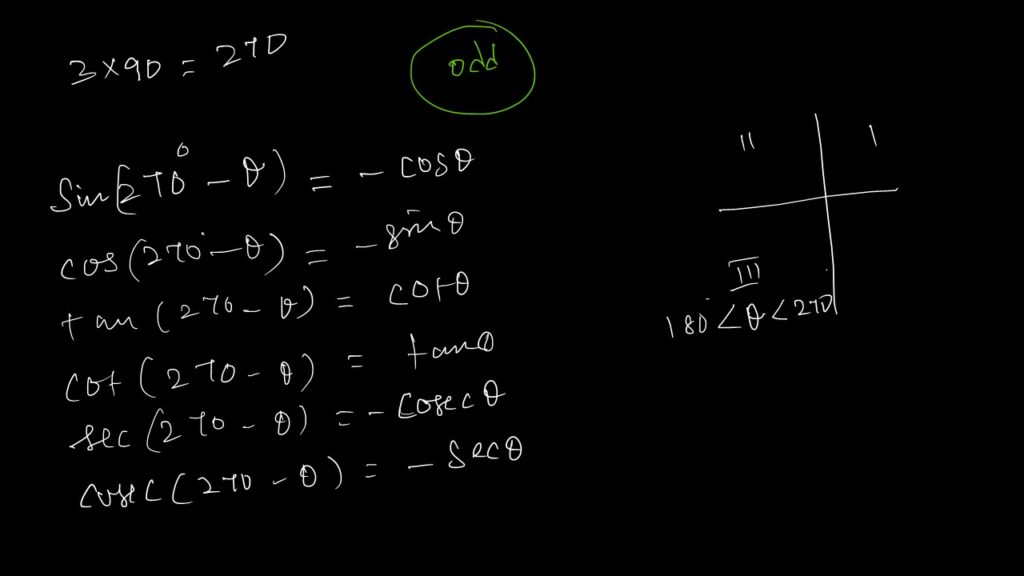 3×90 = 270
odd
Sin(270° - θ) = - cosθ
cos(270° - θ) = - sinθ
tan(270 - θ) = cotθ
cot(270 - θ) = tanθ
sec(270 - θ) = - cosecθ
cosec(270 - θ) = - secθ
II I
III
180° < θ < 270